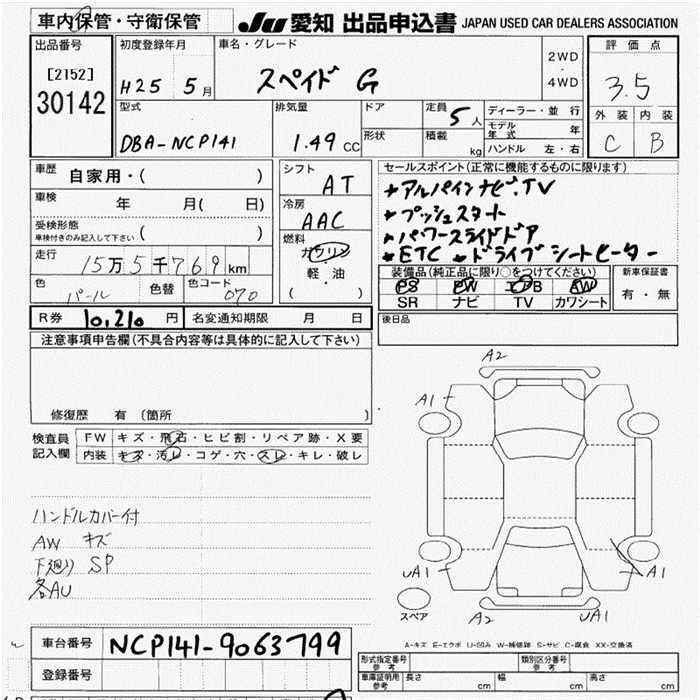 車内保管・守衛保管 JU 愛知 出品申込書 JAPAN USED CAR DEALERS ASSOCIATION
出品番号 [2152] 30142
初度登録年月 H25 5月
車名・グレード スペイド G
2WD ・ 4WD
評価点 3.5
型式 DBA-NCP141
排気量 1.49 CC
ドア
形状
定員 5人
積載 kg
ディーラー・並行
モデル年式 年
ハンドル 左・右
外装 内装
C B
車歴 自家用・( )
車検 年 月( 日)
受検形態 車検付きのみ記入して下さい ( )
走行 15万5千769km
色 パール 色替 色コード 070
シフト AT
冷房 AAC
燃料 ガソリン
軽・油
( )
セールスポイント(正常に機能するものに限ります)
★アルパインナビ.TV
★プッシュスタート
★パワースライドドア
★ETC ★ドライブシートヒーター
装備品(純正品に限り○をつけてください)
PS PW エアB AW
SR ナビ TV カワシート
新車保証書
有・無
R券 10,210 円 名変通知期限 月 日
後日品
注意事項申告欄(不具合内容等は具体的に記入して下さい)
修復歴 有 (箇所 )
検査員記入欄
FW キズ・飛石・ヒビ割・リペア跡・X要
内装 キズ・汚レ・コゲ・穴・スレ・キレ・破レ
ハンドルカバー付
AW キズ
下廻り SP
各AU
A2
A1
UA1
A1
スペア
A2
UA1
A-キズ E-エクボ U-凹み W-補修跡 S-サビ C-腐食 XX-交換済
車台番号 NCP141-9063799
登録番号
形式指定番号 参考 類別区分番号 参考
車庫証明用 参考 長さ cm 幅 cm 高さ cm